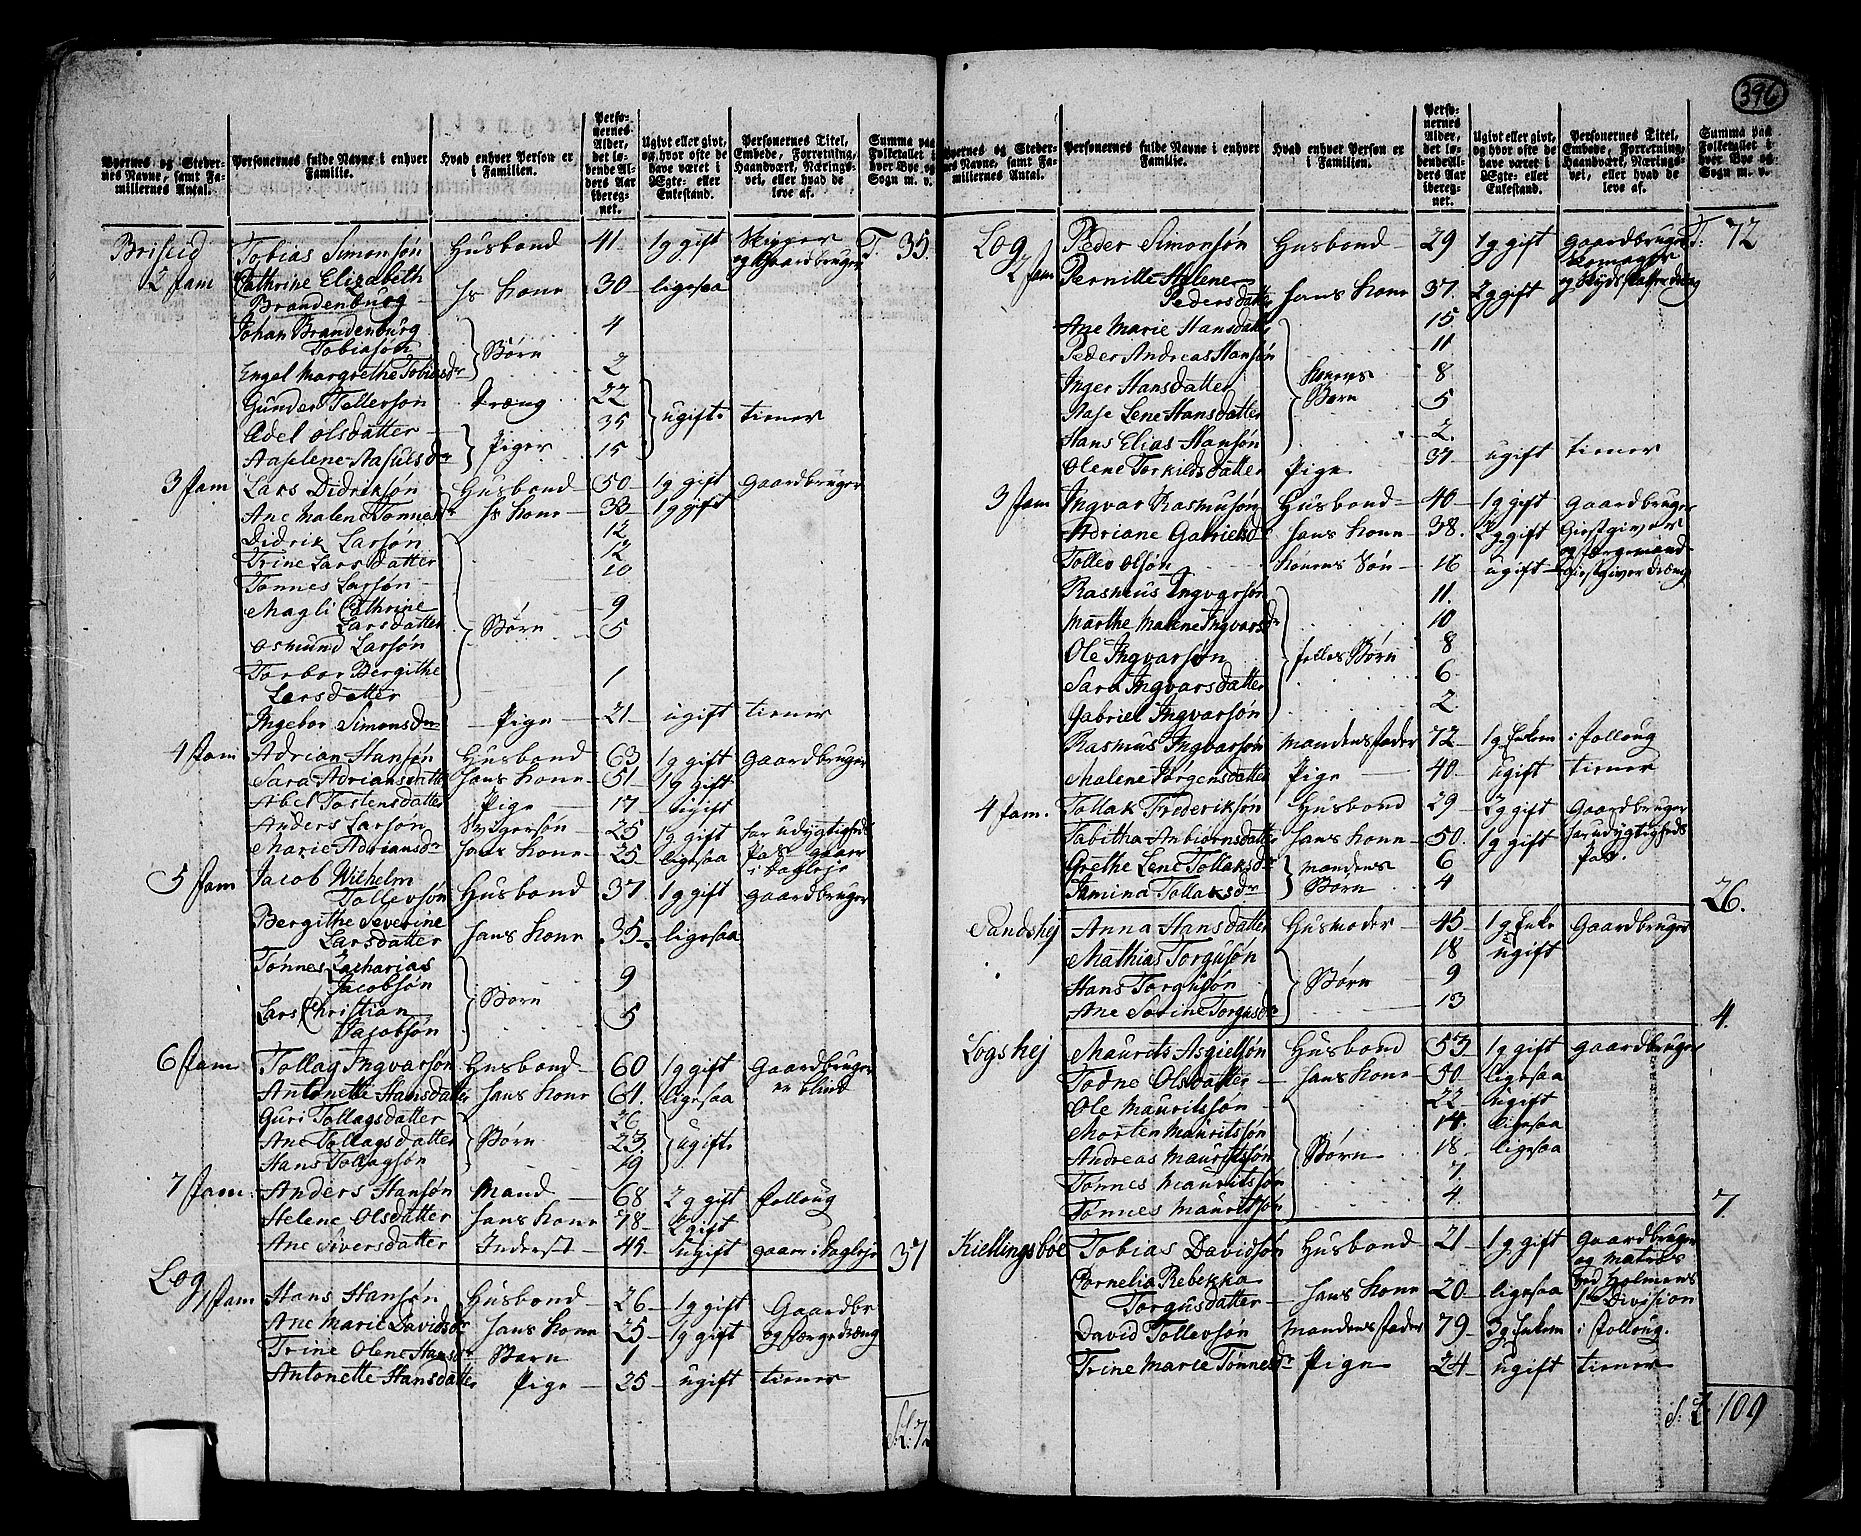 396
Byernes og Stedernes Navne, samt Familiernes Antal. | Personernes fulde Navne i enhver Familie. | Hvad enhver Person er i Familien. | Personernes Alder, det løbende Alders Aar iberegnet. | Ugivt eller givt, og hvor ofte de have været i Ægte- eller Enkestand. | Personernes Titel, Embede, Forretning, Haandværk, Næringsvei, eller hvad de leve af. | Summa paa Folketallet i hver Bye og Sogn m. v.
Tobias Simonsøn | Husbond | 41 | 1g gift | Skipper og Gaardbruger | T. 35.
2 fam | Cathrine Elizabeth Brandenburg | hs Kone | 30 | ligesaa
Johan Brandenburg Tobiasøn | Børn | 4
Engel Margrethe Tobiasdr | 2
Gunder Tollersøn | Dræng | 22 | ugifte | tiener
Adel Olsdatter | Piger | 35
Aaselene Aasulsdr | 15
3 fam | Lars Didriksøn | Husbond | 50 | 1g gift | Gaardbruger
Ane Malene Tønnesdr | hs Kone | 33 | 1g gift
Didrik Larsøn | Børn | 12
Trine Larsdatter | 12
Tønnes Larsøn | 10
Magli Cathrine Larsdatter | 9
Osmund Larsøn | 5
Torbor Bergithe Larsdatter | 1
Ingebor Simonsdr | Pige | 21 | ugift | tiener
4 fam | Adrian Hansøn | Husbond | 63 | 1g gift | Gaardbruger
Sara Adriansdatter | hans Kone | 51 | 1g gift
Abel Tostensdatter | Pige | 17 | ugift
Anders Larsøn | Svigersøn | 25 | 1g gift | har udygtigheds Pas gaaer i Dagleje
Marie Adriansdr | hans Kone | 25 | ligesaa
5 fam | Jacob Wilhelm Tollevsøn | Husbond | 37 | 1g gift | gaardbruger
Bergithe Severine Larsdatter | hans Kone | 35 | ligesaa
Tønnes Zacharias Jacobsøn | Børn | 9
Lars Christian Jacobsøn | 5
6 fam | Tollag Ingvarsøn | Husbond | 60 | 1g gift | Gaardbruger er blind
Antonette Hansdatter | hans Kone | 61. | ligesaa
Guri Tollagsdatter | Børn | 26 | ugifte
Ane Tollagsdatter | 23
Hans Tollagsøn | 19
7 fam. | Anders Hansøn | Mand | 68 | 2g gift | Folloug
Helene Olsdatter | hans Kone | 78 | 2gift
Ane Siversdatter | Inderst | 45 | ugift | gaaer i Dagleje | 37
Log 1 fam | Hans Hansøn | Husbond | 26 | 1g gift | Gaardbr og færgedræng
Ane Marie Davidsdr | hans Kone | 25 | 1g gift
Trine Olene Hansdr | Barn | 1
Antonette Hansdatter | Pige | 25 | ugift | tiener
Byernes og Stedernes Navne, samt Familiernes Antal. | Personernes fulde Navne i enhver Familie. | Hvad enhver Person er i Familien. | Personernes Alder, det løbende Alders Aar iberegnet. | Ugivt eller givt, og hvor ofte de have været i Ægte- eller Enkestand. | Personernes Titel, Embede, Forretning, Haandværk, Næringsvei, eller hvad de leve af. | Summa paa Folketallet i hver Bye og Sogn m. v.
Log 2 fam | Peder Simonsøn | Husbond | 29 | 1g gift | Gaardbruger | T: 72
Pernille Helene Pedersdatter | hans Kone | 37. | 2g gift
Ane Marie Hansdatter | Konens Børn | 15
Peder Andreas Hansøn | 11
Inger Hansdatter | 8
Aase Lene Hansdatter | 5
Hans Elias Hansøn | 2.
Olene Torkildsdatter | Pige | 37 | ugift | tiener
3 fam | Ingvar Rasmusøn | Husbond | 40 | 1g gift | Gaardbruger Giestgiver og færgemand
Adriane Gabrielsdr | hans Kone | 38. | 2g gift
Tollev Olsøn | Konens Søn | 16 | ugift | Giestgiver dræng
Rasmus Ingvarsøn | felles Børn | 11.
Marthe Malene Ingvarsdr | 10
Ole Ingvarsøn | 8
Sara Ingvarsdatter | 6
Gabriel Ingvarsøn | 2
Rasmus Ingvarsøn | Mandens fader | 72 | 1g Enkem | i Folloug
Malene Jørgensdatter | Pige | 40 | ugift | tiener
4 fam. | Tollak Frederiksøn | Husbond | 29 | 2g gift | Gaardbruger har udygtigheds Pas.
Tabitha Anbiørnsdatter | hans Kone | 50. | 1g gift
Grethe Lene Tollaksdr | mandens Børn | 6
Jamina Tollaksdr | 4 | 26.
Sandshej | Anna Hansdatter | Husmoder | 45 | 1g Enke | Gaardbruger
Mathias Torgusøn | Børn | 18 | ugift
Hans Torgusøn | 9
Ane Sorine Torgusdr | 13 | 4.
Logshej | Maurits Asgielsøn | Husbond | 53 | 1g gift | gaardbruger
Todne Olsdatter | hans Kone | 50. | ligesaa
Ole Mauritssøn | Børn | 22 | ugift
Morten Mauritssøn | 14. | ligesaa
Andreas Mauritssøn | 18 | ligesaa
Tønnes Mauritssøn | 7
Tønnes Mauritssøn | 4. | 7.
Kiellingsbøe | Tobias Davidsøn | Husbond | 21 | 1g gift | Gaardbruger og Matros ved Holmens 1 Division
Cornelia Rebekka Torgusdatter | hans Kone | 20 | ligesaa
David Tollevsøn | Mandens fader | 79 | 3g Enkem | i Folloug.
Trine Marie Tønnesdr | Pige | 24 | ugift | tiener
109